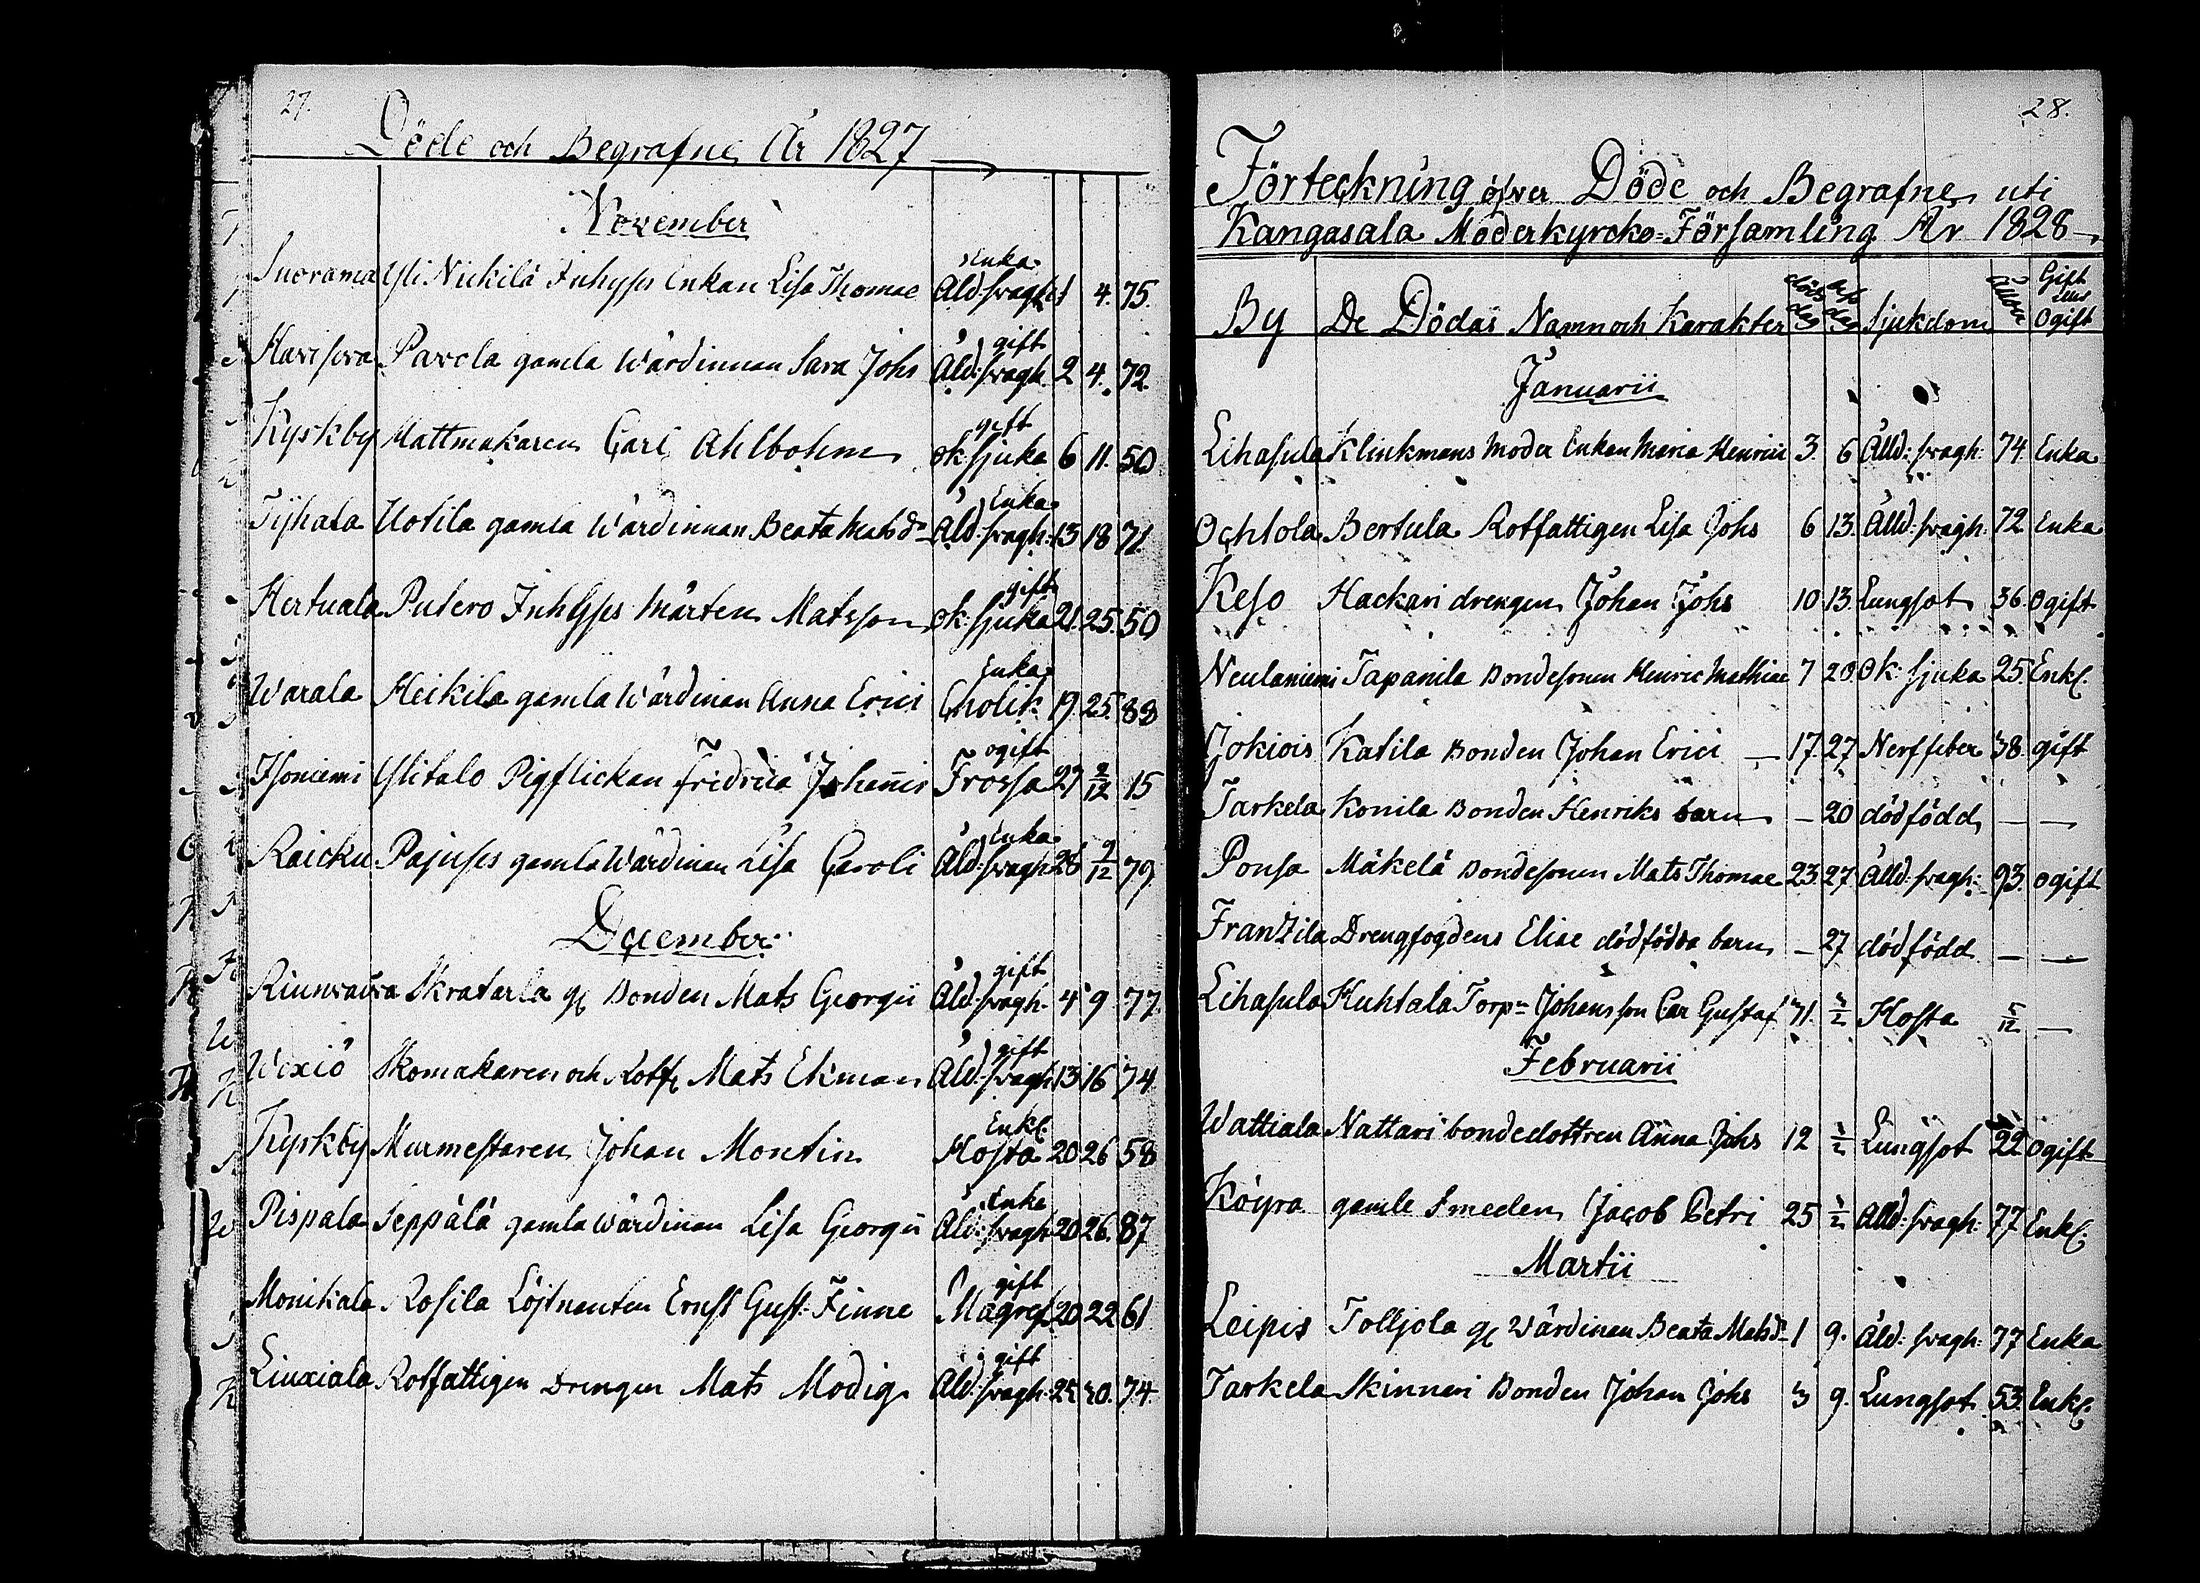 27.
Döde och Begrafne År 1827
November
Suorama Yli Nickilä Inhyses Enkan Lisa Thomae Enka Åld: svagh: 1 4. 75.
Havisova Pavola gamla Wärdinnan Sara Johs gift Åld: svagh 2 4. 72.
Kyrkby Mattmakaren Carl Ahlbohm gift ok: sjuka 6 11. 50
Tijhala Uotila gamla Wärdinnan Beata Matsd:r Enka Åld: svagh: 13 18 71.
Hertuala Putero Inhyses Mårten Matsson gift ok: sjuka 21. 25. 50
Warala Heikila gamla Wärdinan Anna Erici Enka Cholik 19. 25. 88
Isoniemi Ylitalo Pigflickan Fredrica Johannis ogift Frossa 27 2/12 15
Raicku Pajuses gamla Wärdinan Lisa Caroli Enka Åld: svagh 28 2/12 79.
December
Riunvaiva Skratarla gl Bonden Mats Georgii gift Åld: svagh. 4 9. 77.
Wexiö Skomakaren och Rotfl Mats Ekman gift Åld: svagh 13 16 74.
Kyrkby Murmestaren Johan Montin Enkl. Hosta 20 26 58
Pispala Seppälä gamla Wärdinan Lisa Georgii Enka Åld: svagh 20 26. 87
Monikala Rosila Löjtnanten Ernst Gust: Finne gift Magref 20 22 61
Liuxiala Rotfattigen Drengen Mats Modig gift Åld: svagh 25 30. 74.
28.
Förteckning öfver Döde och Begrafne uti
Kangasala Moderkyrcko-Församling År 1828
By De Dödas Namn och Karakter döds dag beg dag Sjukdom Ålder Gift eller Ogift
Januarii
Lihasula Klinkmans Moder Enkan Maria Henrici 3. 6 Ålld: svagh: 74. Enka
Ochtola Bertula Rotfattigen Lisa Johs 6 13. Ålld: svagh: 72 Enka
Keso Hackari drengen Johan Johs 10 13. Lungsot 36. Ogift
Neulaniemi Tapanila Bondesonen Henric Mathiae 7 20 Ok: sjuka 25. Enkl.
Jokiois Katila Bonden Johan Erici — 17. 27 Nerffeber 38. gift
Tarkela Konila Bonden Henriks barn — 20 dödfödd — —
Ponsa Mäkelä Bondesonen Mats Thomae 23. 27. Ålld: svagh: 93. ogift
Franzila Drengfogdens Eliae dödfödda barn — 27 dödfödd — —
Lihasula Huhtala Torp:n Johans son Car Gustaf 71. 3/2 Hosta 5/12 —
Februarii
Wattiala Nattari bondedottren Anna Johs 12 3/2 Lungsot 22 Ogift
Köyra gamle Smeden Jacob Petri 25 3/2 Ålld: svagh: 77 Enkl.
Martii
Leipis Tolljola gl Wärdinan Beata Matsd:r 1 9. Åld: svagh: 77 Enka
Tarkela Skinnari Bonden Johan Johs 3 9. Lungsot 53. Enkl.